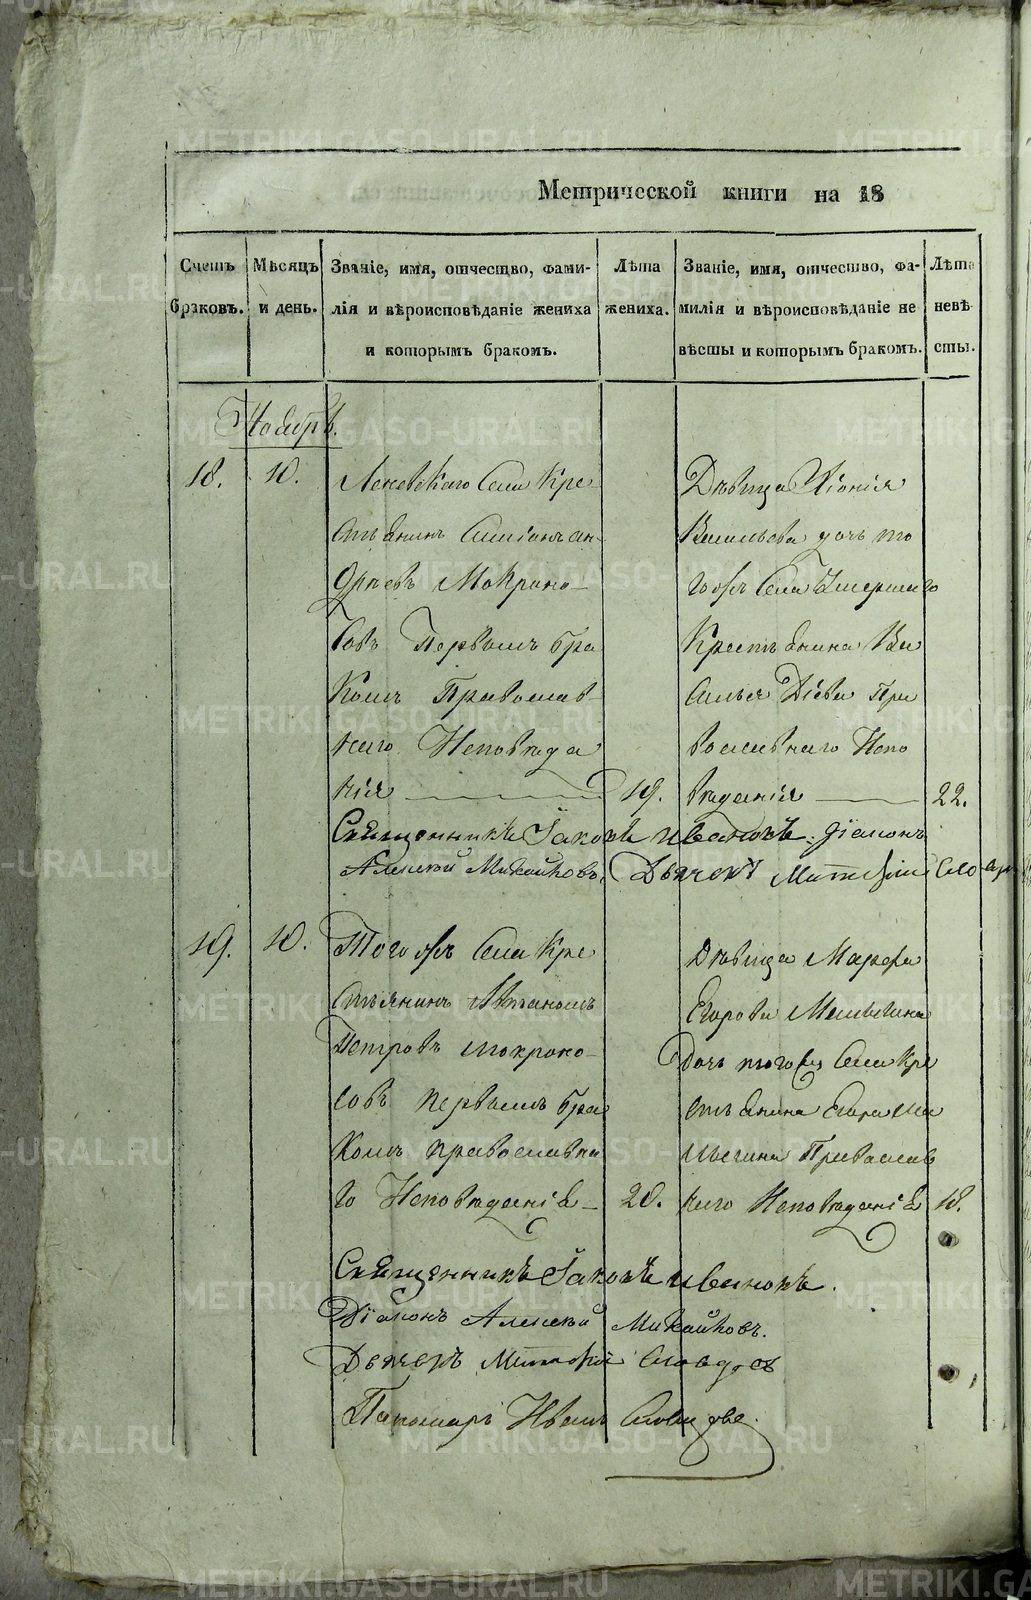 Метрической книги на 18
Счетъ браковъ.
Мѣсяцъ и день.
Званіе, имя, отчество, фами-
лія и вѣроисповѣданіе жениха
и которымъ бракомъ.
Лѣта
жениха.
Званіе, имя, отчество, фа-
милія и вѣроисповѣданіе не
вѣсты и которымъ бракомъ.
Лѣта
невѣ
сты.
Ноябрь.
18.
10.
Леневскаго Села Кре
стьянинъ Симіонъ Ан-
дреевъ Мокроно-
совъ Первымъ бра
комъ Православ-
наго Исповѣда
нія
19.
Дѣвица Хіонія
Васильева дочь то
гожъ Села Умершаго
Крестьянина Ва
силья Дѣева Пра
вославнаго Испо
вѣданія
22.
Священникъ Іаковъ Ивановъ. Діаконъ
Алексѣй Михайловъ. Дьячекъ
19.
10.
Тогожъ Села Кре
стьянинъ
Петровъ Мокроно-
совъ первымъ бра
комъ православна
го Исповѣданія
20.
Дѣвица Марфа
Егорова Малыгина
Дочь того же Села Кре
стьянина Егора Ма
лыгина Православ
наго Исповѣданія
18.
Священникъ Іаковъ Ивановъ.
Діаконъ Алексѣй Михайловъ.
Дьячекъ
Пономарь Иванъ
METRIKI.GASO-URAL.RU